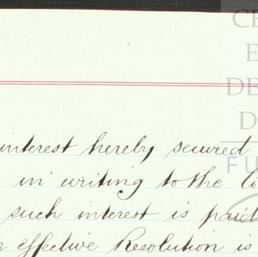 interest hereby secured
in writing to the
such interest is paid
effective Resolution is